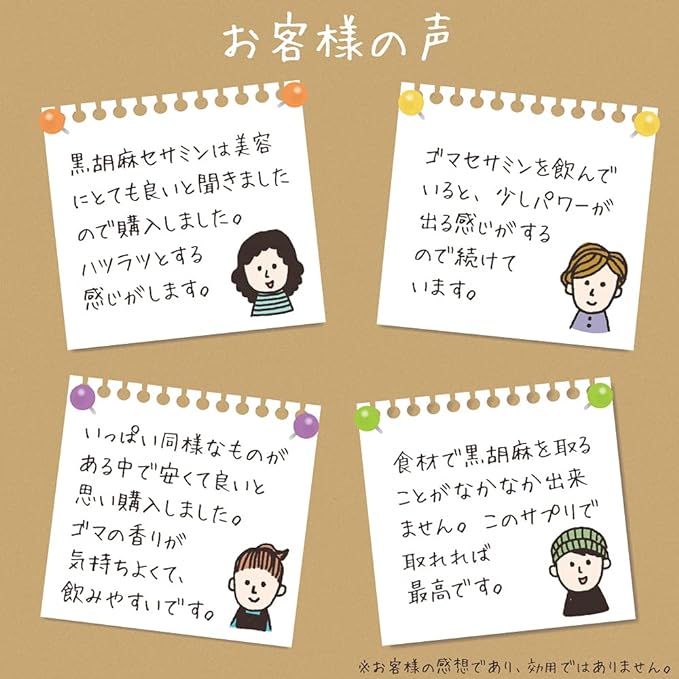 お客様の声
黒胡麻セサミンは美容
にとても良いと聞きました
ので購入しました。
ハツラツとする
感じがします。
ゴマセサミンを飲んで
いると、少しパワーが
出る感じがする
ので続けて
います。
いっぱい同様なものが
ある中で安くて良いと
思い購入しました。
ゴマの香りが
気持ちよくて、
飲みやすいです。
食材で黒胡麻を取る
ことがなかなか出来
ません。このサプリで
取れれば
最高です。
※お客様の感想であり、効用ではありません。